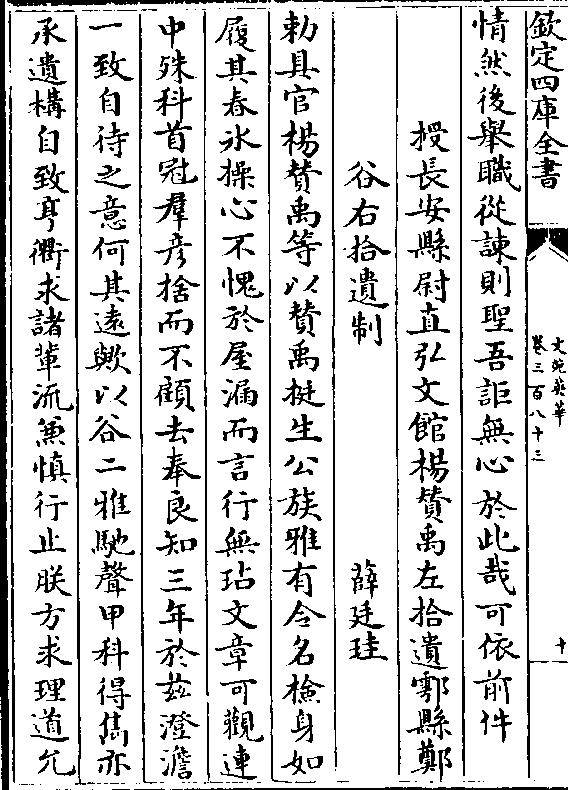 欽定四庫全書
文苑英華
卷三百八十三
十
情然後舉職從諫則聖吾詎無心於此哉可依前件
授長安縣尉直弘文館楊贊禹左拾遺鄠縣鄭
谷右拾遺制
薛廷珪
勅具官楊贊禹等以贊禹挺生公族雅有令名檢身如
履其春氷操心不愧於屋漏而言行無玷文章可觀連
中殊科首冠羣彦捨而不顧去奉良知三年於兹澄澹
一致自待之意何其遠歟以谷二雅馳聲甲科得雋亦
承遺構自致亨衢求諸輩流兼慎行止朕方求理道允